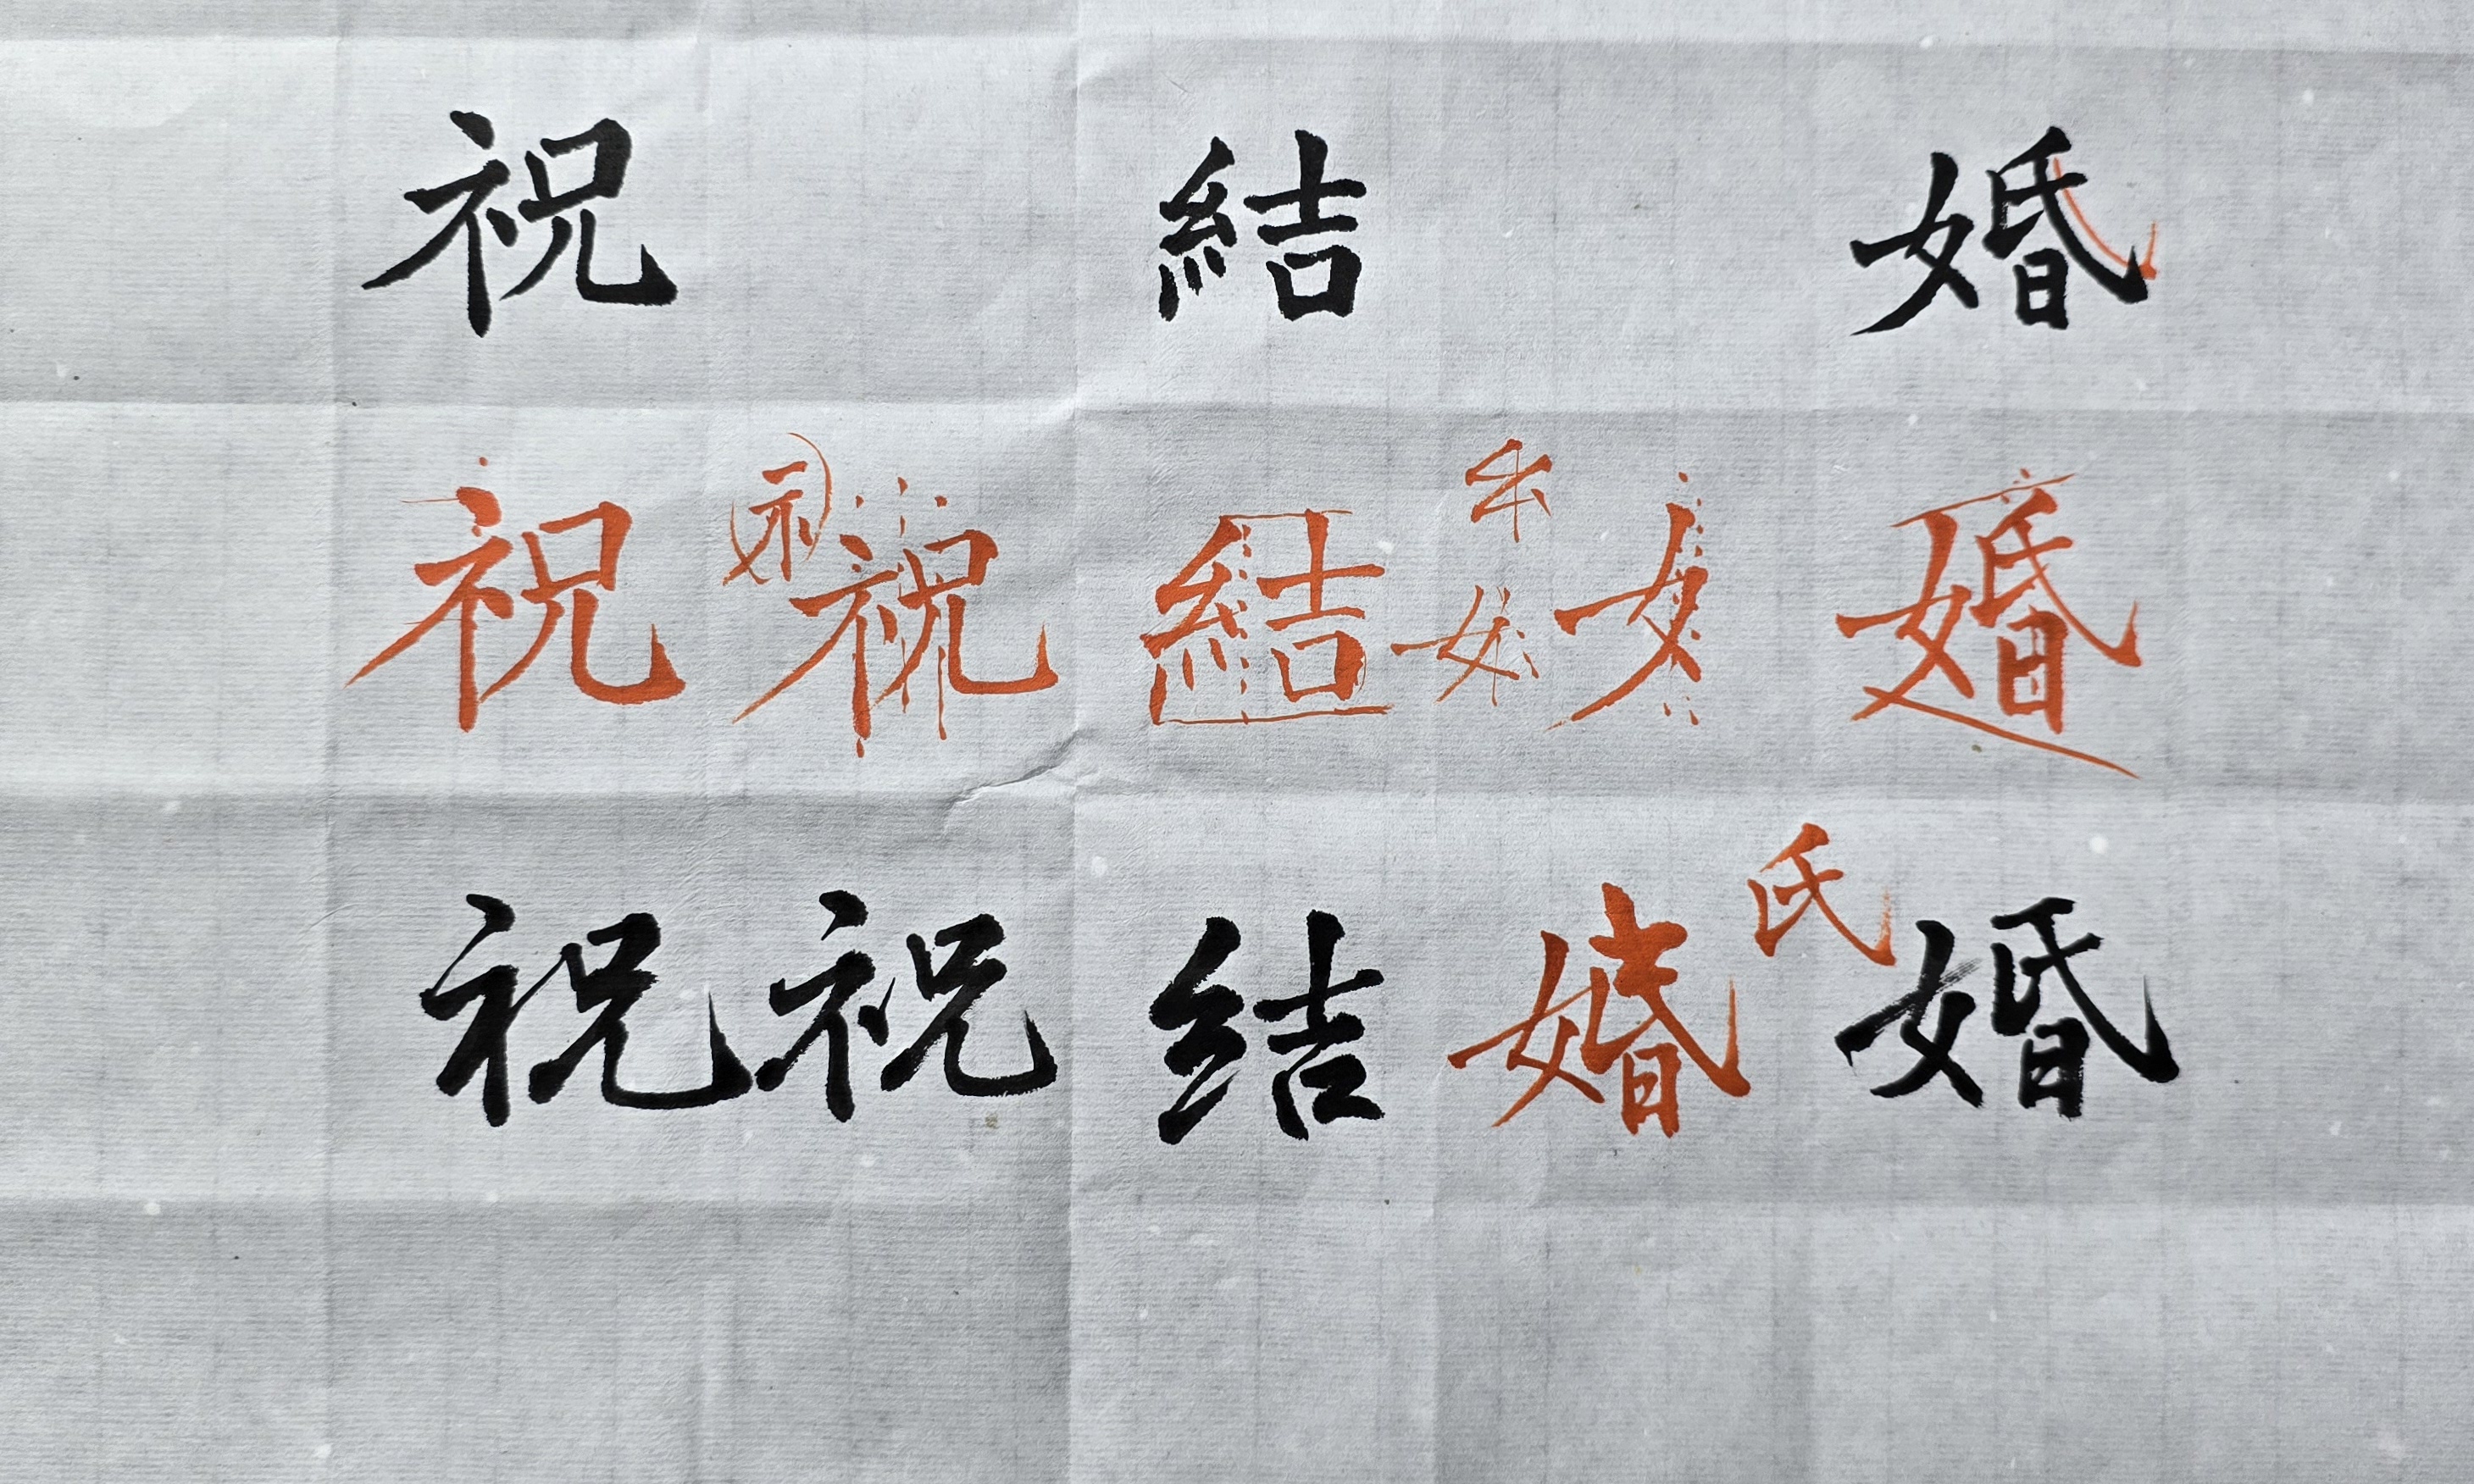 祝 結 婚
祝 祝 結 女 女 婚
祝 祝 结 婚 氏 婚